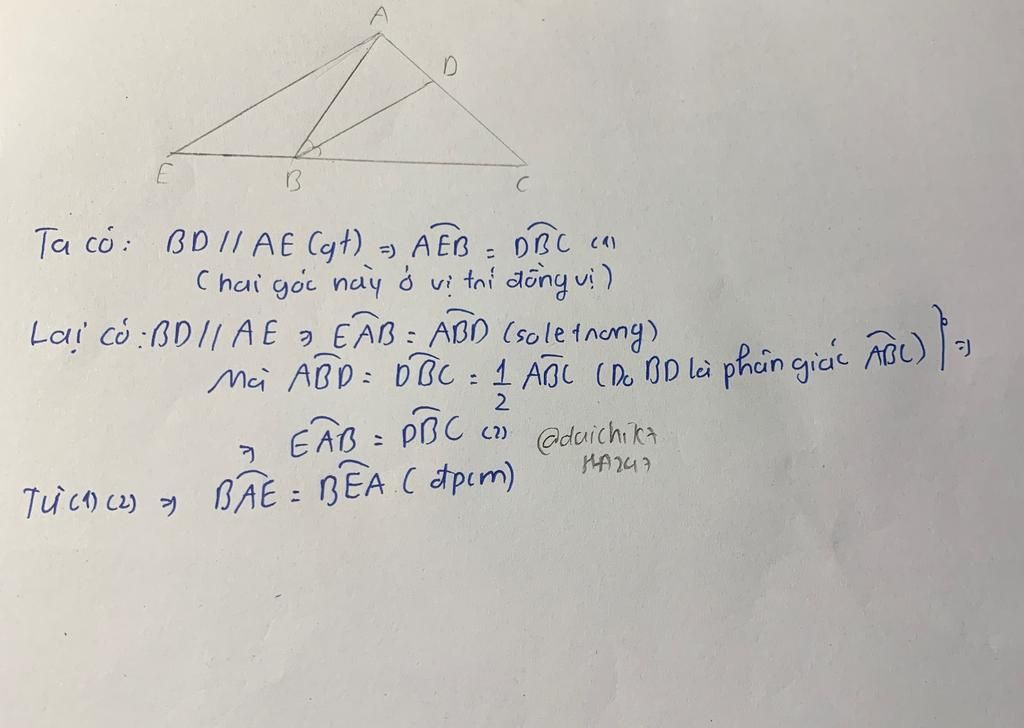 A
D
E
B
C
Ta có: BD // AE (gt) => \widehat{AEB} = \widehat{DBC} (1)
(hai góc này ở vị trí đồng vị)
Lại có: BD // AE => \widehat{EAB} = \widehat{ABD} (sole trong)
Mà \widehat{ABD} = \widehat{DBC} = \frac{1}{2} \widehat{ABC} (Do BD là phân giác \widehat{ABC}) } =>
=> \widehat{EAB} = \widehat{DBC} (2)
@daichik7
HA247
Từ (1) (2) => \widehat{BAE} = \widehat{BEA} (đpcm)